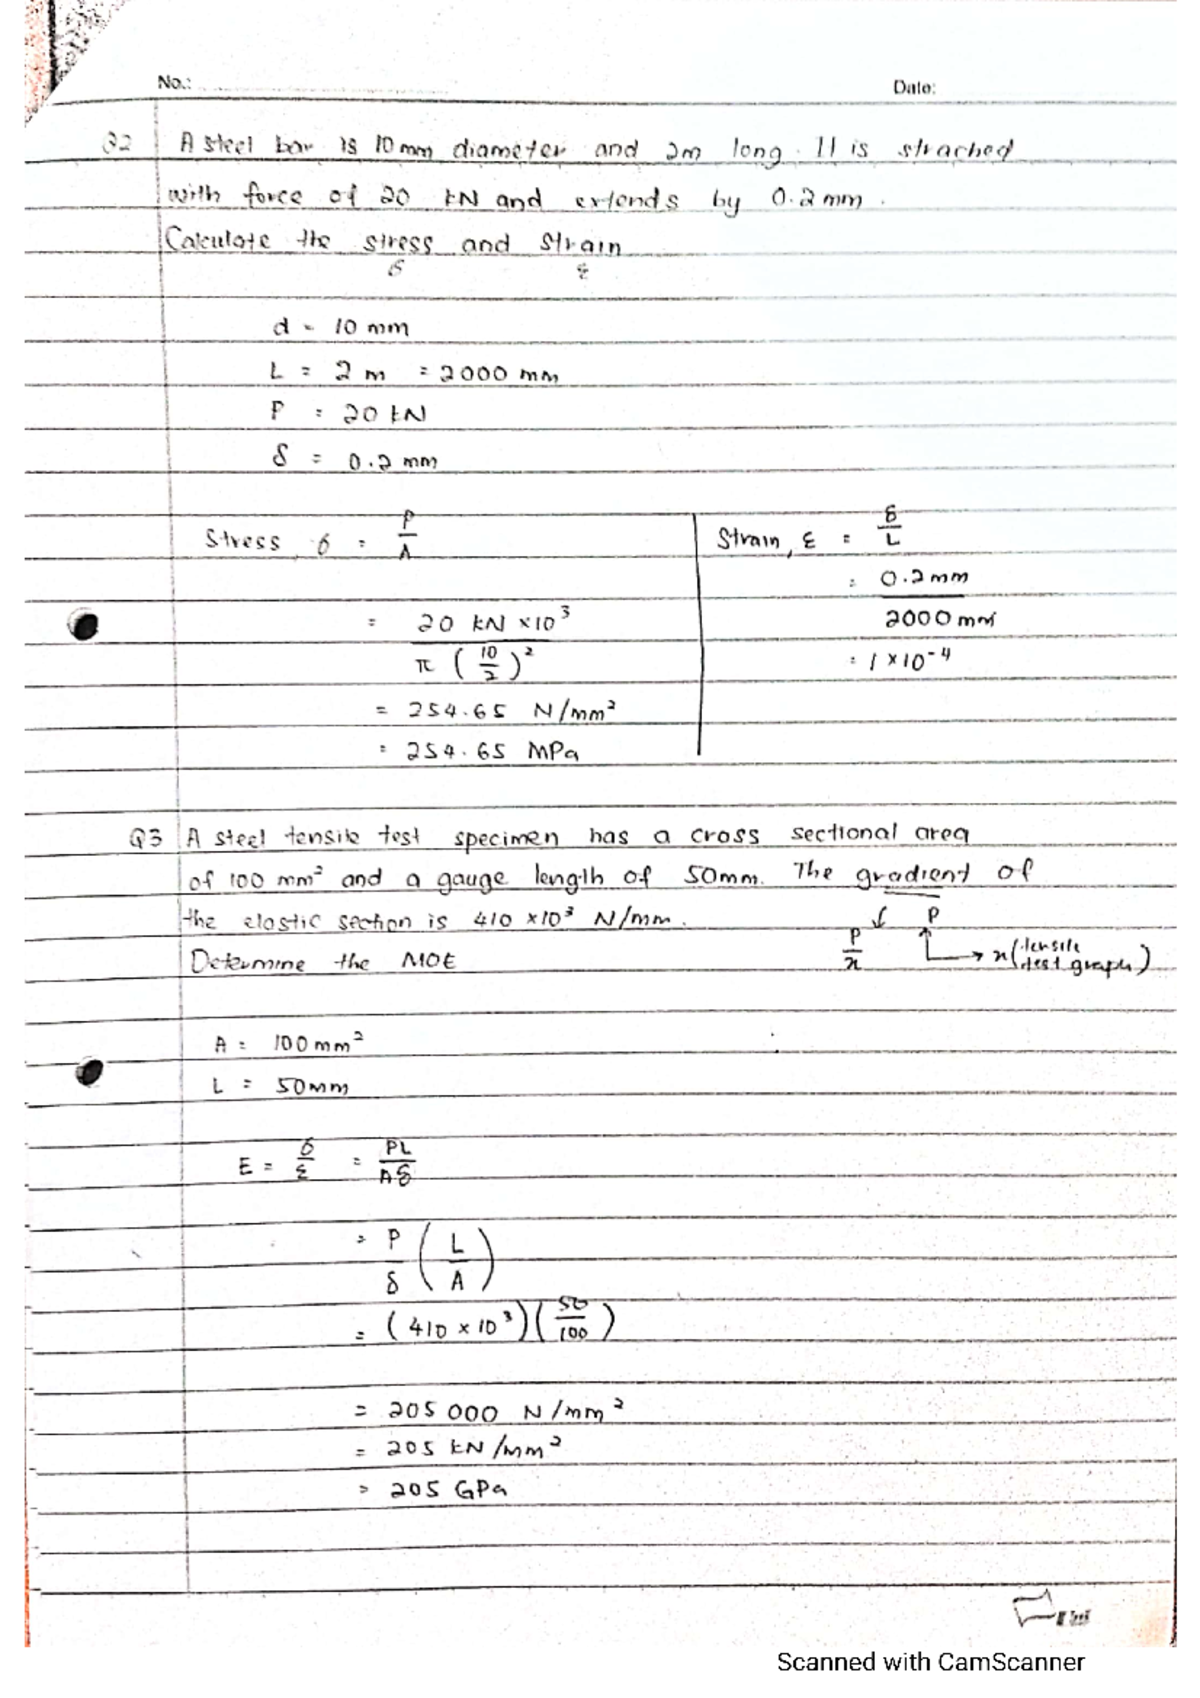 No.:
Date:
Q2 A steel bar is 10 mm diameter and 2m long. It is strached
with force of 20 kN and extends by 0.2 mm.
Calculate the stress and strain
σ ε
d = 10 mm
L = 2 m = 2000 mm
P = 20 kN
δ = 0.2 mm
Stress, σ = P/A
= 20 kN ×10³ / π (10/2)²
= 254.65 N/mm²
= 254.65 MPa
Strain, ε = δ/L
= 0.2 mm / 2000 mm
= 1 × 10⁻⁴
Q3 A steel tensile test specimen has a cross sectional area
of 100 mm² and a gauge length of 50mm. The gradient of
the elastic section is 410 ×10³ N/mm.
P/x P → x (tensile test graph)
Determine the MOE
A = 100 mm²
L = 50mm
E = σ/ε = PL/Aδ
= P/δ (L/A)
= (410 × 10³)(50/100)
= 205 000 N/mm²
= 205 kN/mm²
= 205 GPa
Scanned with CamScanner